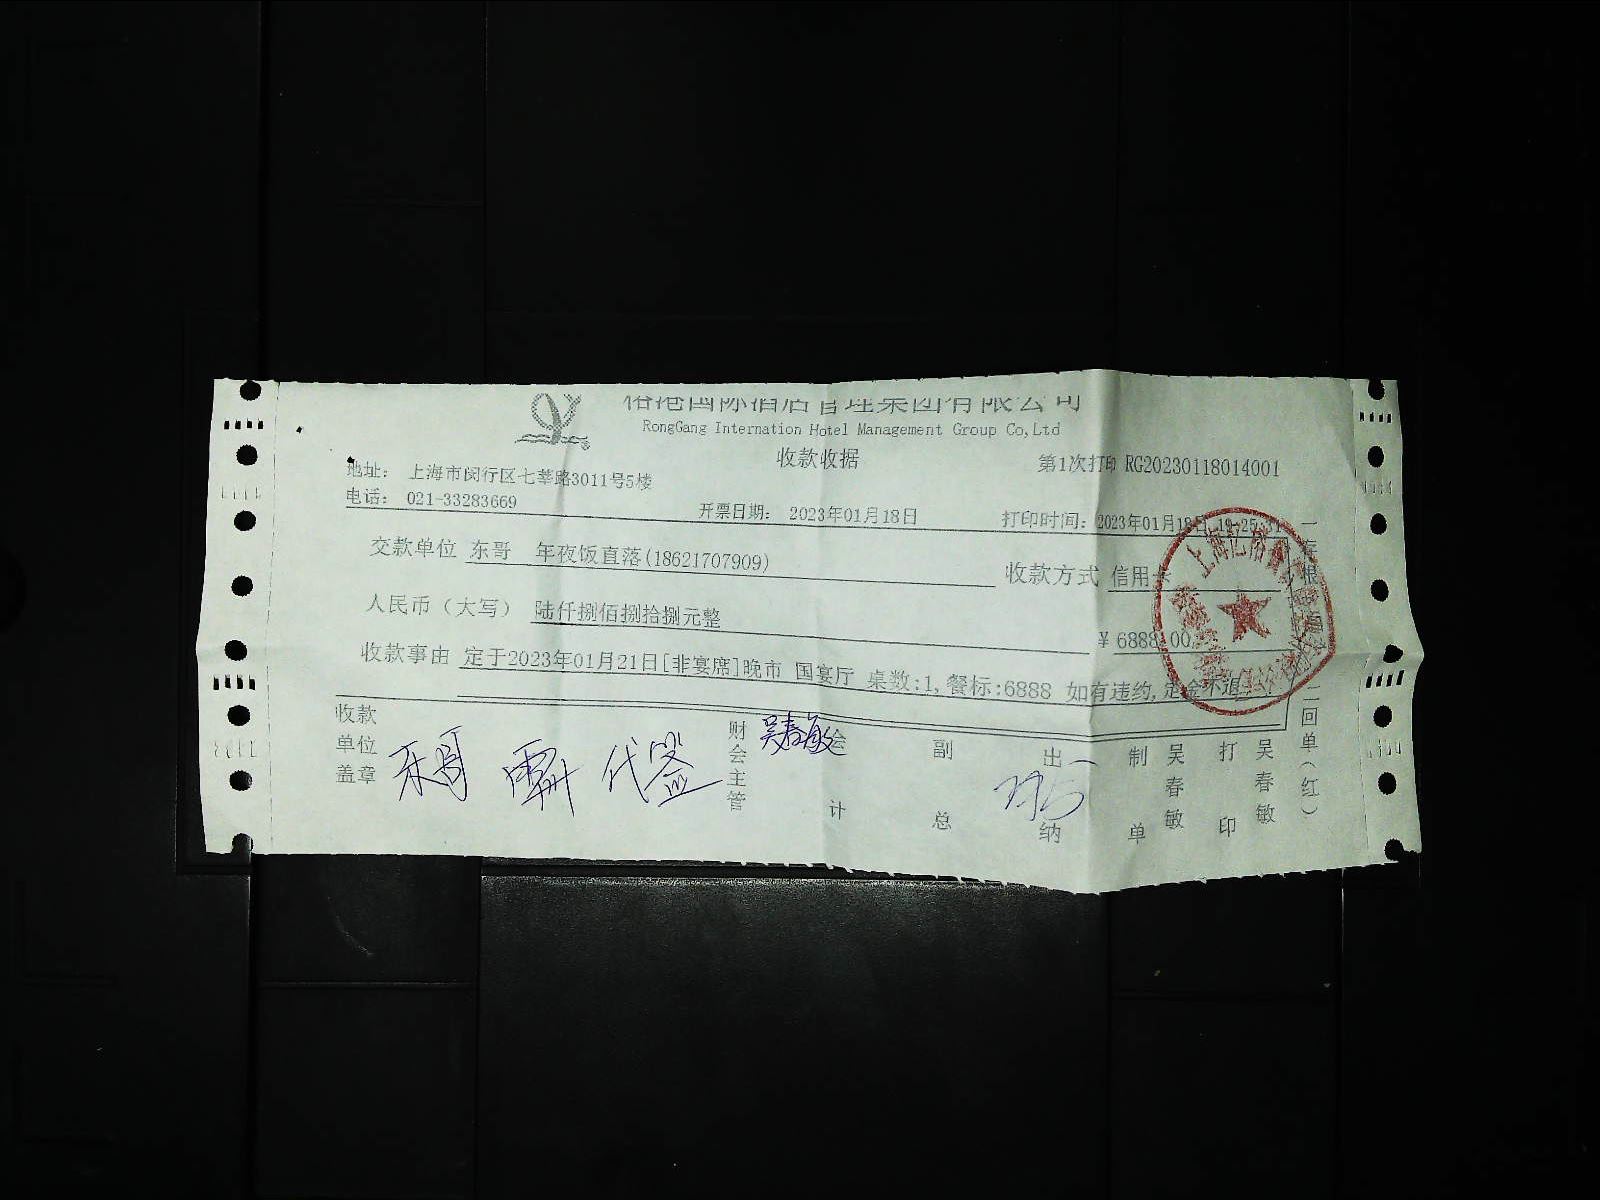 榕港国际酒店管理集团有限公司
RongGang Internation Hotel Management Group Co,Ltd
收款收据
第1次打印 RG20230118014001
地址： 上海市闵行区七莘路3011号5楼
电话： 021-33283669
开票日期： 2023年01月18日
打印时间：2023年01月18日 19:25:31
交款单位 东哥 年夜饭直落(18621707909)
收款方式 信用卡
人民币（大写） 陆仟捌佰捌拾捌元整
￥6888.00
收款事由 定于2023年01月21日[非宴席]晚市 国宴厅 桌数:1,餐标:6888 如有违约,定金不退
收款单位盖章
代签
财会主管 吴春敏
会计
副总
出纳
制单 吴春敏
打印 吴春敏
一存根
二回单(红)